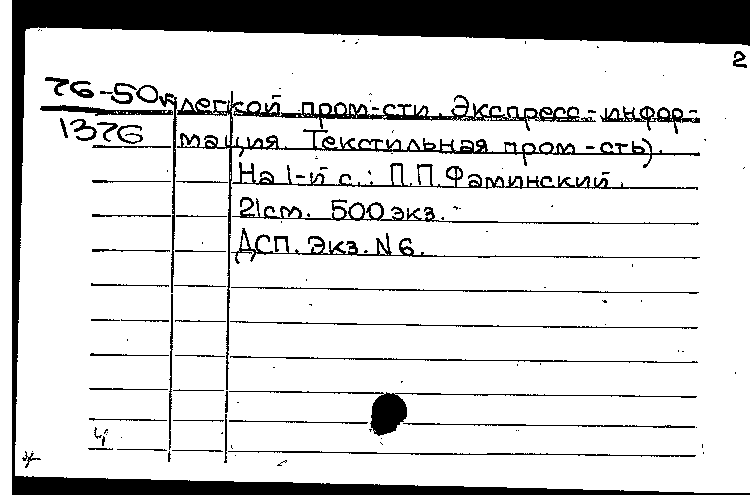 2
76-50к легкой пром-сти. Экспресс-инфор-
1376 мация. Текстильная пром-сть).
На 1-й с.: П.П. Фаминский.
21 см. 500 экз.
ДСП. Экз. N 6.
ч